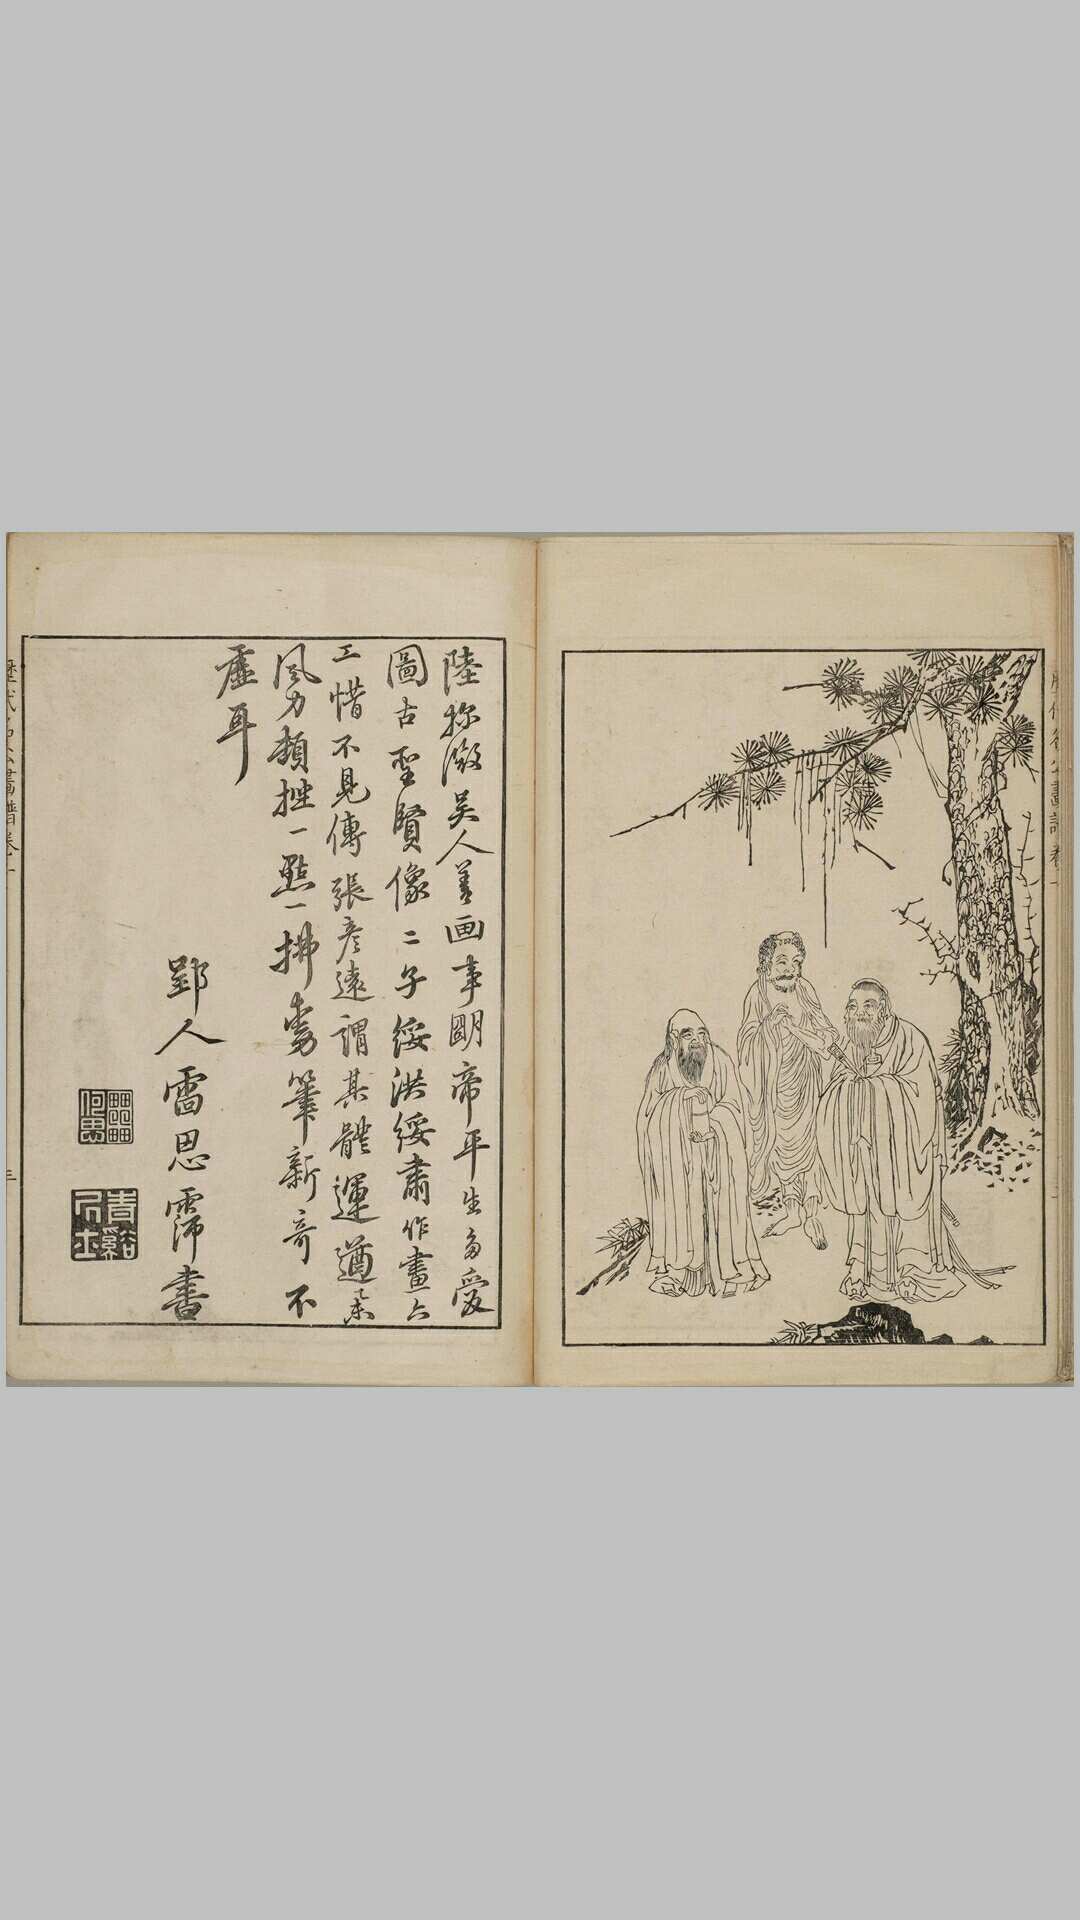 歷代名公畫譜卷一
陸探微吳人善画事明帝平生多愛
圖古聖賢像二子綏洪綏肅作畫亦
工惜不見傳張彥遠謂其體運遒舉
風力頓挫一點一拂動筆新奇不
虛耳
郢人雷思霈書
青谿
歷代名公畫譜卷一
三